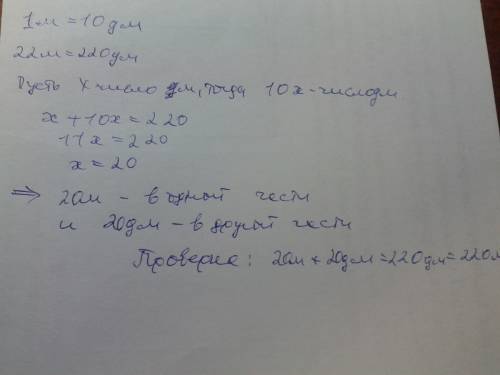 1м = 10дм
22м = 220дм
Пусть x число м, тогда 10x - число дм
x + 10x = 220
11x = 220
x = 20
⇒ 20м - в одной части
и 20дм - в другой части
Проверка: 20м + 20дм = 220дм = 220м